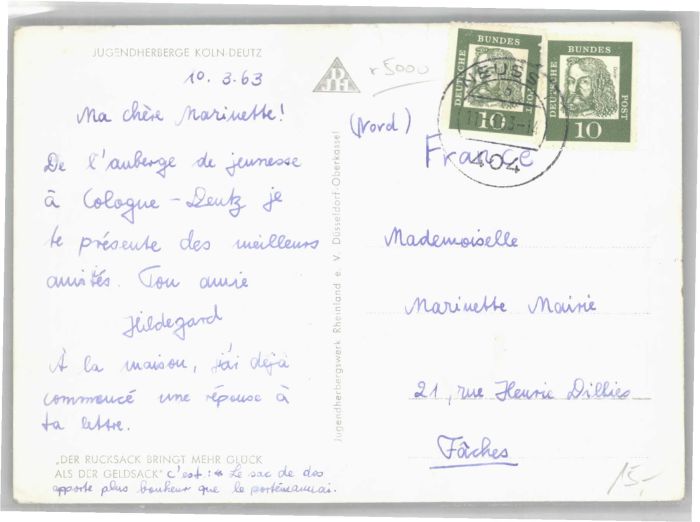 JUGENDHERBERGE KÖLN-DEUTZ
10. 3. 63
Ma chère Marinette!
De l'auberge de jeunesse
à Cologne-Deutz je
te présente des meilleurs
amitiés. Ton amie
Hildegard
À la maison, j'ai déjà
commencé une réponse à
ta lettre.
„DER RUCKSACK BRINGT MEHR GLÜCK
ALS DER GELDSACK" c'est: " Le sac de dos
apporte plus bonheur que le portémannai.
Jugendherbergswerk Rheinland e. V. Düsseldorf-Oberkassel
DJH
r 5000
DEUTSCHE BUNDES POST
10
DEUTSCHE BUNDES POST
10
NEUSS
404
(Nord)
France
Mademoiselle
Marinette Mairie
21, rue Henrie Dillies
Fâches
15,-